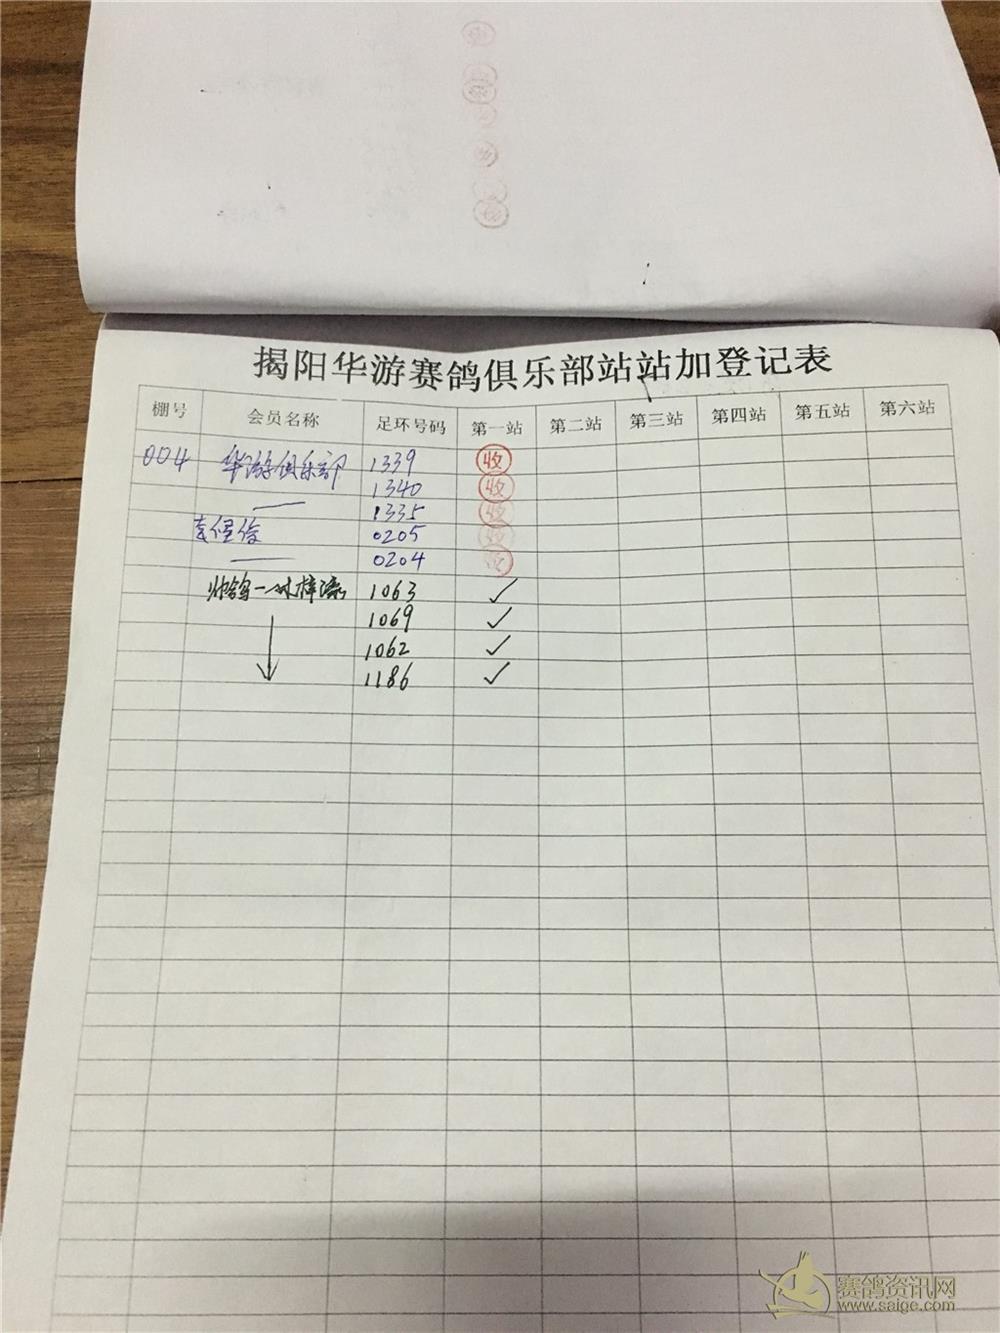 揭阳华游赛鸽俱乐部站站加登记表
棚号 会员名称 足环号码 第一站 第二站 第三站 第四站 第五站 第六站
004 华游俱乐部 1339 收
1340 收
1335 收
0205 收
0204 收
1063 ✓
1069 ✓
1062 ✓
1186 ✓
赛鸽资讯网
www.saige.com